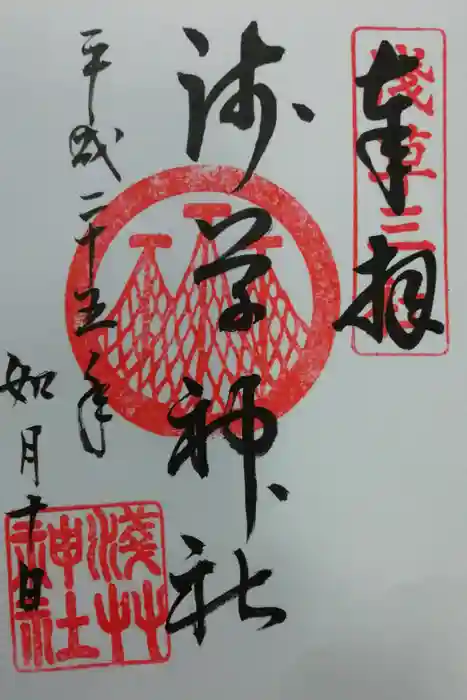 奉拝
淺草三
浅草神社
平成二十五年
如月十日
淺艸
神社